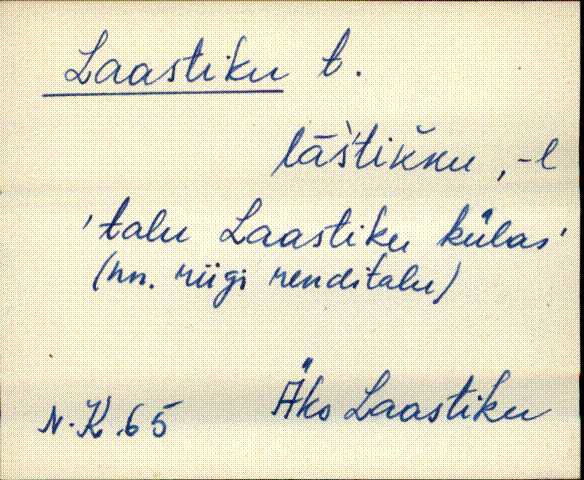 Laastiku t.
lās̀tik̆ku, -l
'talu Laastiku külas'
(nn. riigi renditalu)
N.K.65 Äks Laastiku